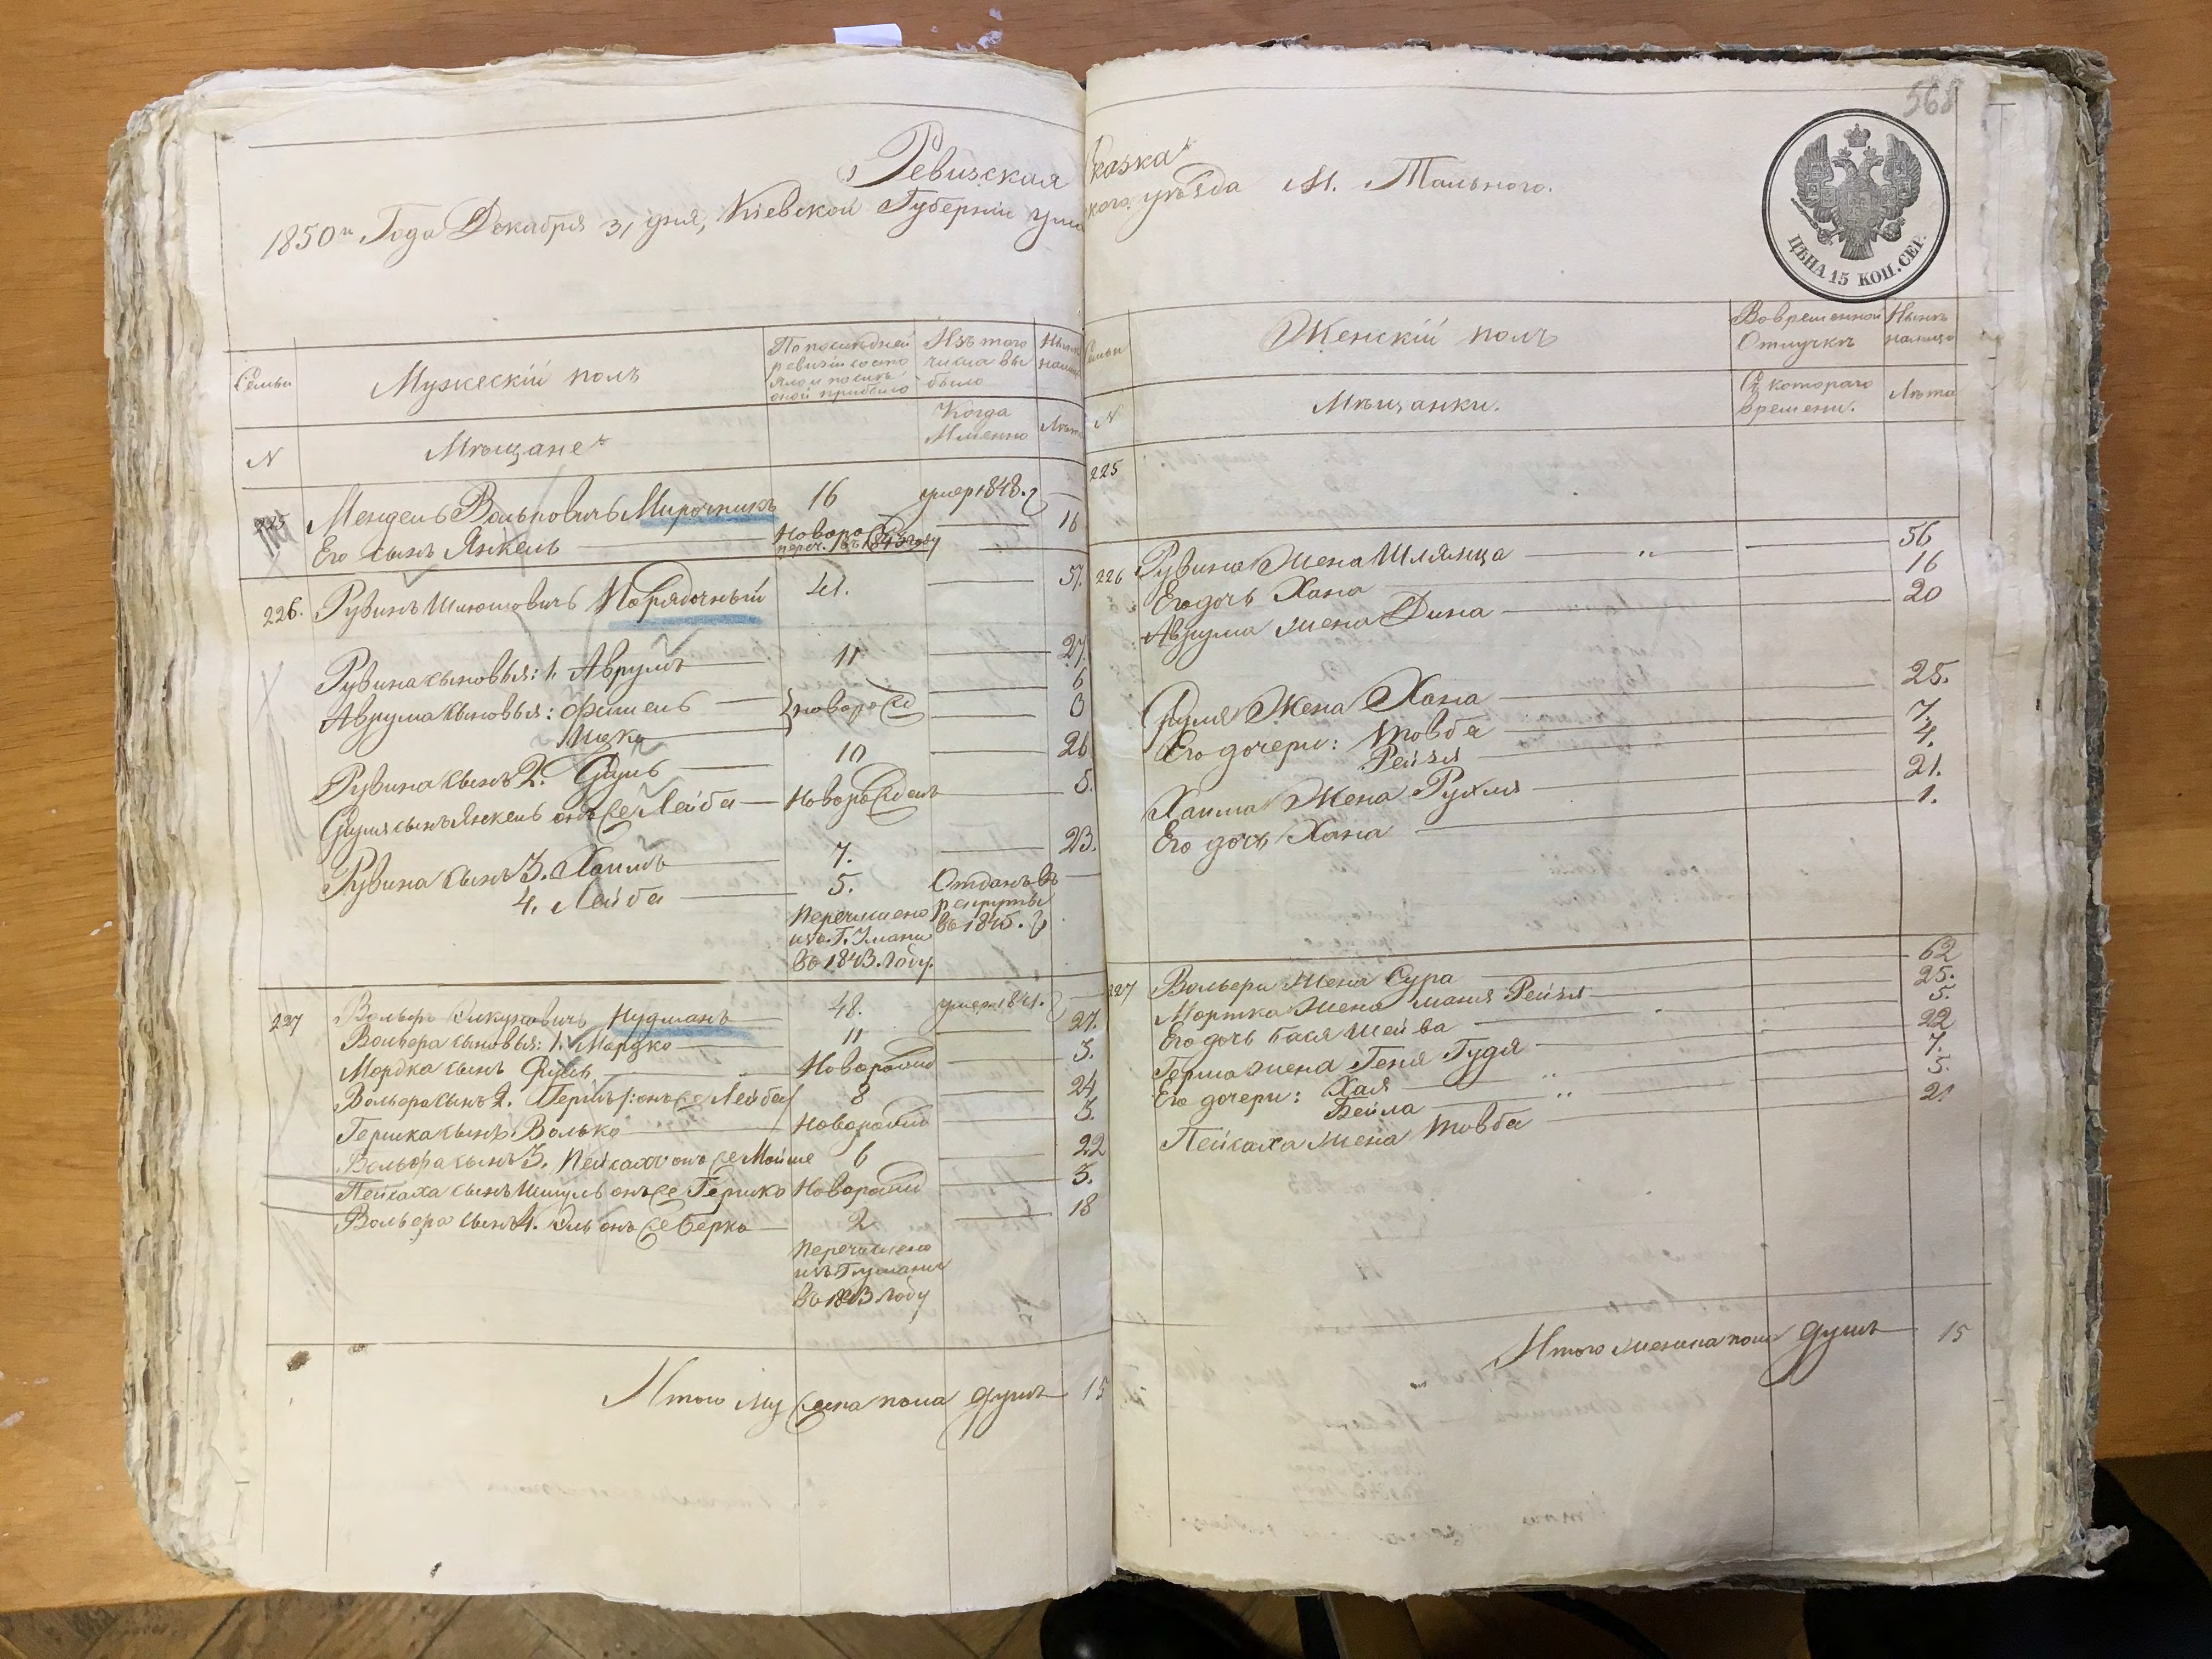 568
Ревизская Сказка
1850го Года Декабря 31 дня, Кіевской Губерніи Уманского уѣзда М. Тального.
ЦѢНА 15 КОП. СЕР.
Семьи
Мужескій полъ
По последней ревизіи состояло и после оной прибыло
Изъ того числа выбыло
Ныне налицо
N
Мѣщане
Когда Именно
Лѣта
225 Мендель Вольковичъ Мирочникъ 16 умер 1848.
Его сынъ Янкель Новорожд 16
переч. въ 1843 году
226. Рувинъ Порядочный 41. 57.
Рувина сыновья: 1. Аврумъ 11 27.
Аврума сыновья: Фишель новорожд 6
Ицко 3
Рувина сынъ 2. Сруль 10 26
Сруля сынъ Янкель онъ же Лейба Новорожден 5.
Рувина сынъ 3. Хаимъ 7. 23.
4. Лейба 5. Отданъ въ рекруты въ 1845.
Перечислено изъ Г. Умани въ 1843. году.
227 Вольфъ Нудманъ 48. умер 1841.
Вольфа сыновья: 1. Мордко 11 27.
Мордка сынъ Сруль Новорожд 3.
Вольфа сынъ 2. Гершъ онъ же Лейба 8 24
Гершка сынъ Волько Новорожд 3.
Вольфа сынъ 3. Пейсахъ онъ же Мойше 6 22
Пейсаха сынъ Шмуль онъ же Гершко Новорожд 3.
Вольфа сынъ 4. онъ же Берко 2 18
Перечислено изъ Г Умани въ 1843 году
Итого мужеска пола душъ 15
Семьи
Женскій полъ
Во временной Отлучкѣ
Нынѣ налицо
N
Мѣщанки.
Съ котораго времени.
Лѣта
225
226 Рувина Жена 56
Его дочь Хана 16
Аврума жена Дина 20
Сруля Жена Хана 25.
Его дочери: Товба 7.
Рейзя 4.
Хаима Жена Рухля 21.
Его дочь Хана 1.
227 Вольфа Жена Сура 62
Мортка Жена Маня Рейзя 25.
Его дочь Бася Шейва 5.
Герша жена Геня Гудя 22
Его дочери: Хая 7.
Бейла 5.
Пейсаха жена Товба 21
Итого женска пола душъ 15